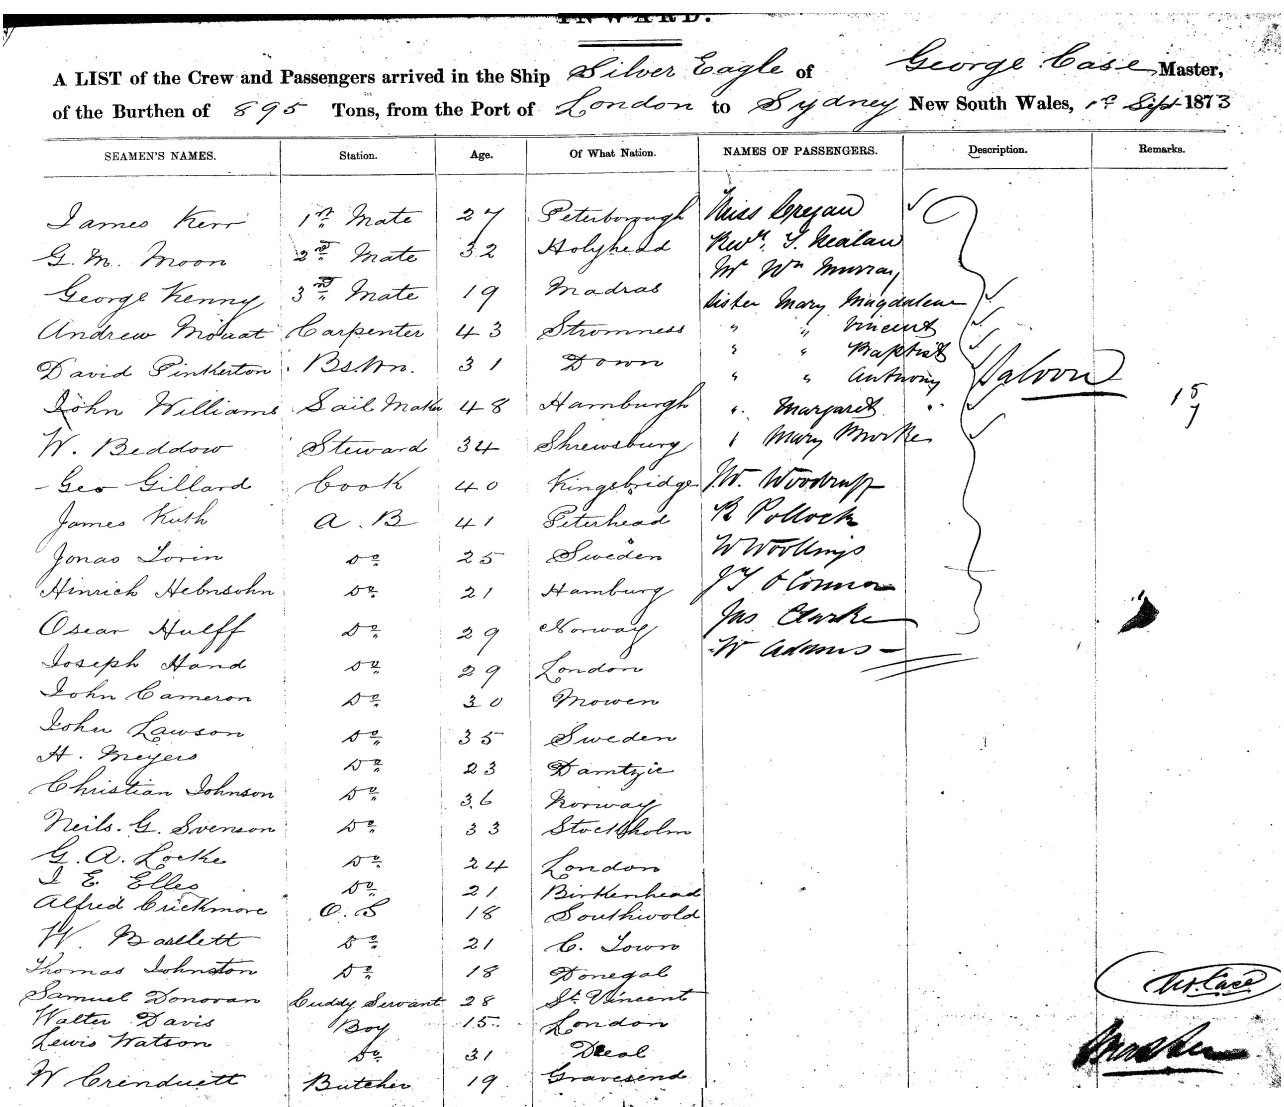 INWARD.
A LIST of the Crew and Passengers arrived in the Ship Silver Eagle of George Case Master,
of the Burthen of 895 Tons, from the Port of London to Sydney New South Wales, 1st Sept 1873
SEAMEN'S NAMES. Station. Age. Of What Nation. NAMES OF PASSENGERS. Description. Remarks.
James Kerr 1st Mate 27 Peterborough Miss Cregan
G. M. Moon 2nd Mate 32 Holyhead Revd. T. Nealan
Mr Wm Murray
George Kenny 3rd Mate 19 Madras Sister Mary Magdalene
Andrew Mouat Carpenter 43 Stromness " " Vincent
" " Baptist
David Pinkerton Bswn. 31 Down " " Anthony Saloon
John Williams Sail Maker 48 Hamburgh " Margaret " 15
7
W. Beddow Steward 34 Shrewsbury " Mary Burke
Geo Gillard Cook 40 Kingsbridge W. Woodruff
James Kuth A. B 41 Peterhead R Pollock
Jonas Lorin Do 25 Sweden W Woollings
Hinrich Hebnsohn Do 21 Hamburg O'Connor
Oscar Hulff Do 29 Norway Jas Clarke
Joseph Hand Do 29 London W Adams
John Cameron Do 30 Mowen
John Lawson Do 35 Sweden
H. Meyers Do 23 Damtzic
Christian Johnson Do 36 Norway
Neils. G. Svenson Do 33 Stockholm
G. A. Locke Do 24 London
J E. Elles Do 21 Birkenhead
Alfred Crickmore O. S 18 Southwold
W. Baslett Do 21 C. Town
Thomas Johnston Do 18 Donegal
Samuel Donovan Cuddy Servant 28 St. Vincent
Case
Walter Davis Boy 15 London
Lewis Watson Do 31 Deal
Master
W Crenduett Butcher 19 Gravesend